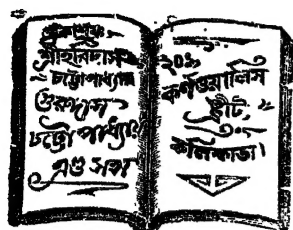 প্রকাশক
শ্রীহরিদাস
চট্টোপাধ্যায়
গুরুদাস
চট্টোপাধ্যায়
এণ্ড সন্স
২০১
কর্ণওয়ালিস
ষ্ট্রীট,
কলিকাতা।